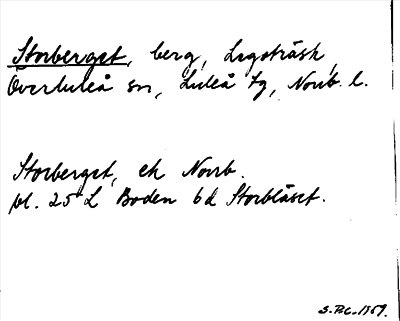 Storberget, berg, Logoträsk,
Överluleå sn, Luleå tg, Norrb. l.
Storberget, ek Norrb.
bl. 25 L Boden 6d Storblåset.
S.Bc.1959.